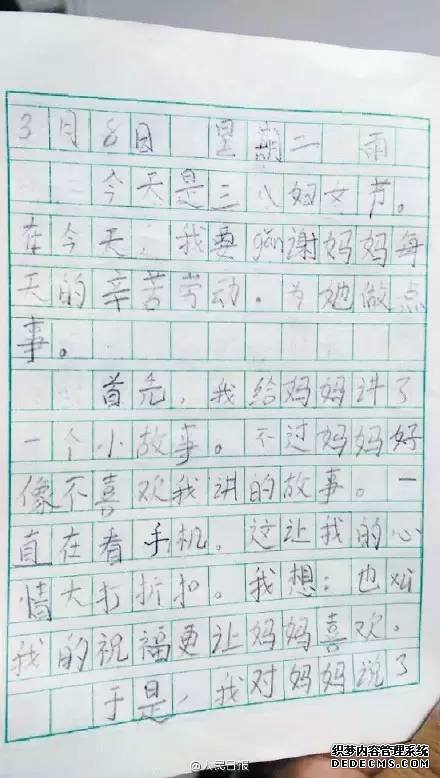 3月8日 星期二 雨
今天是三八妇女节。
在今天,我要gǎn谢妈妈每
天的辛苦劳动。为她做点
事。
首先,我给妈妈讲了
一个小故事。不过妈妈好
像不喜欢我讲的故事。一
直在看手机。这让我的心
情大打折扣。我想:也
我的祝福更让妈妈喜欢。
于是,我对妈妈说了
@人民日报
织梦内容管理系统
DEDECMS.COM